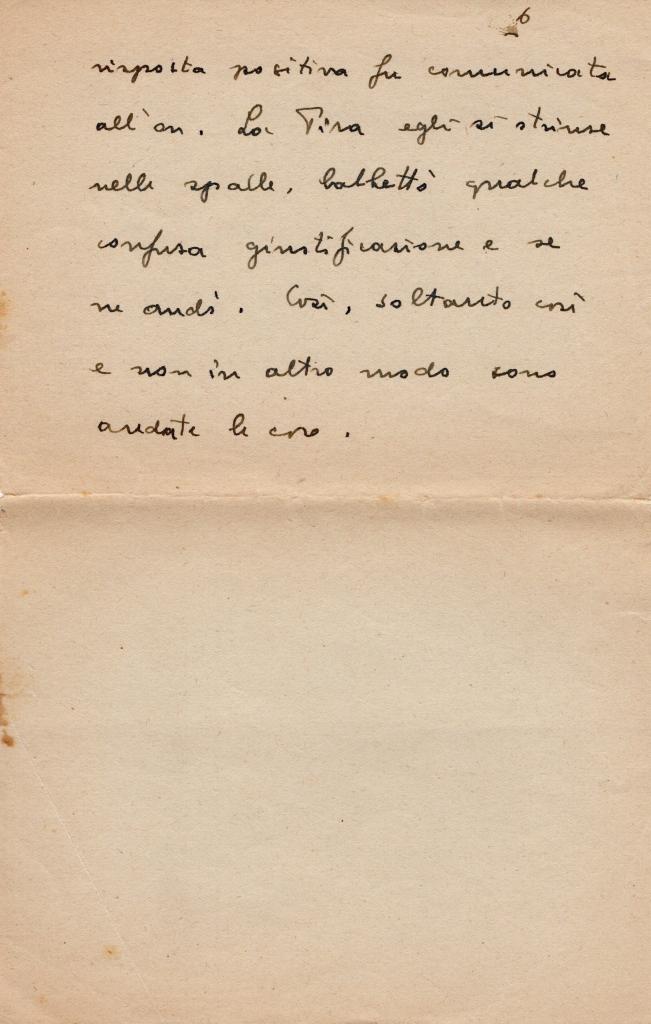 6
risposta positiva fu comunicata
all'on. La Pira egli si strinse
nelle spalle, balbettò qualche
confusa giustificazione e se
ne andò. Così, soltanto così
e non in altro modo sono
andate le cose.